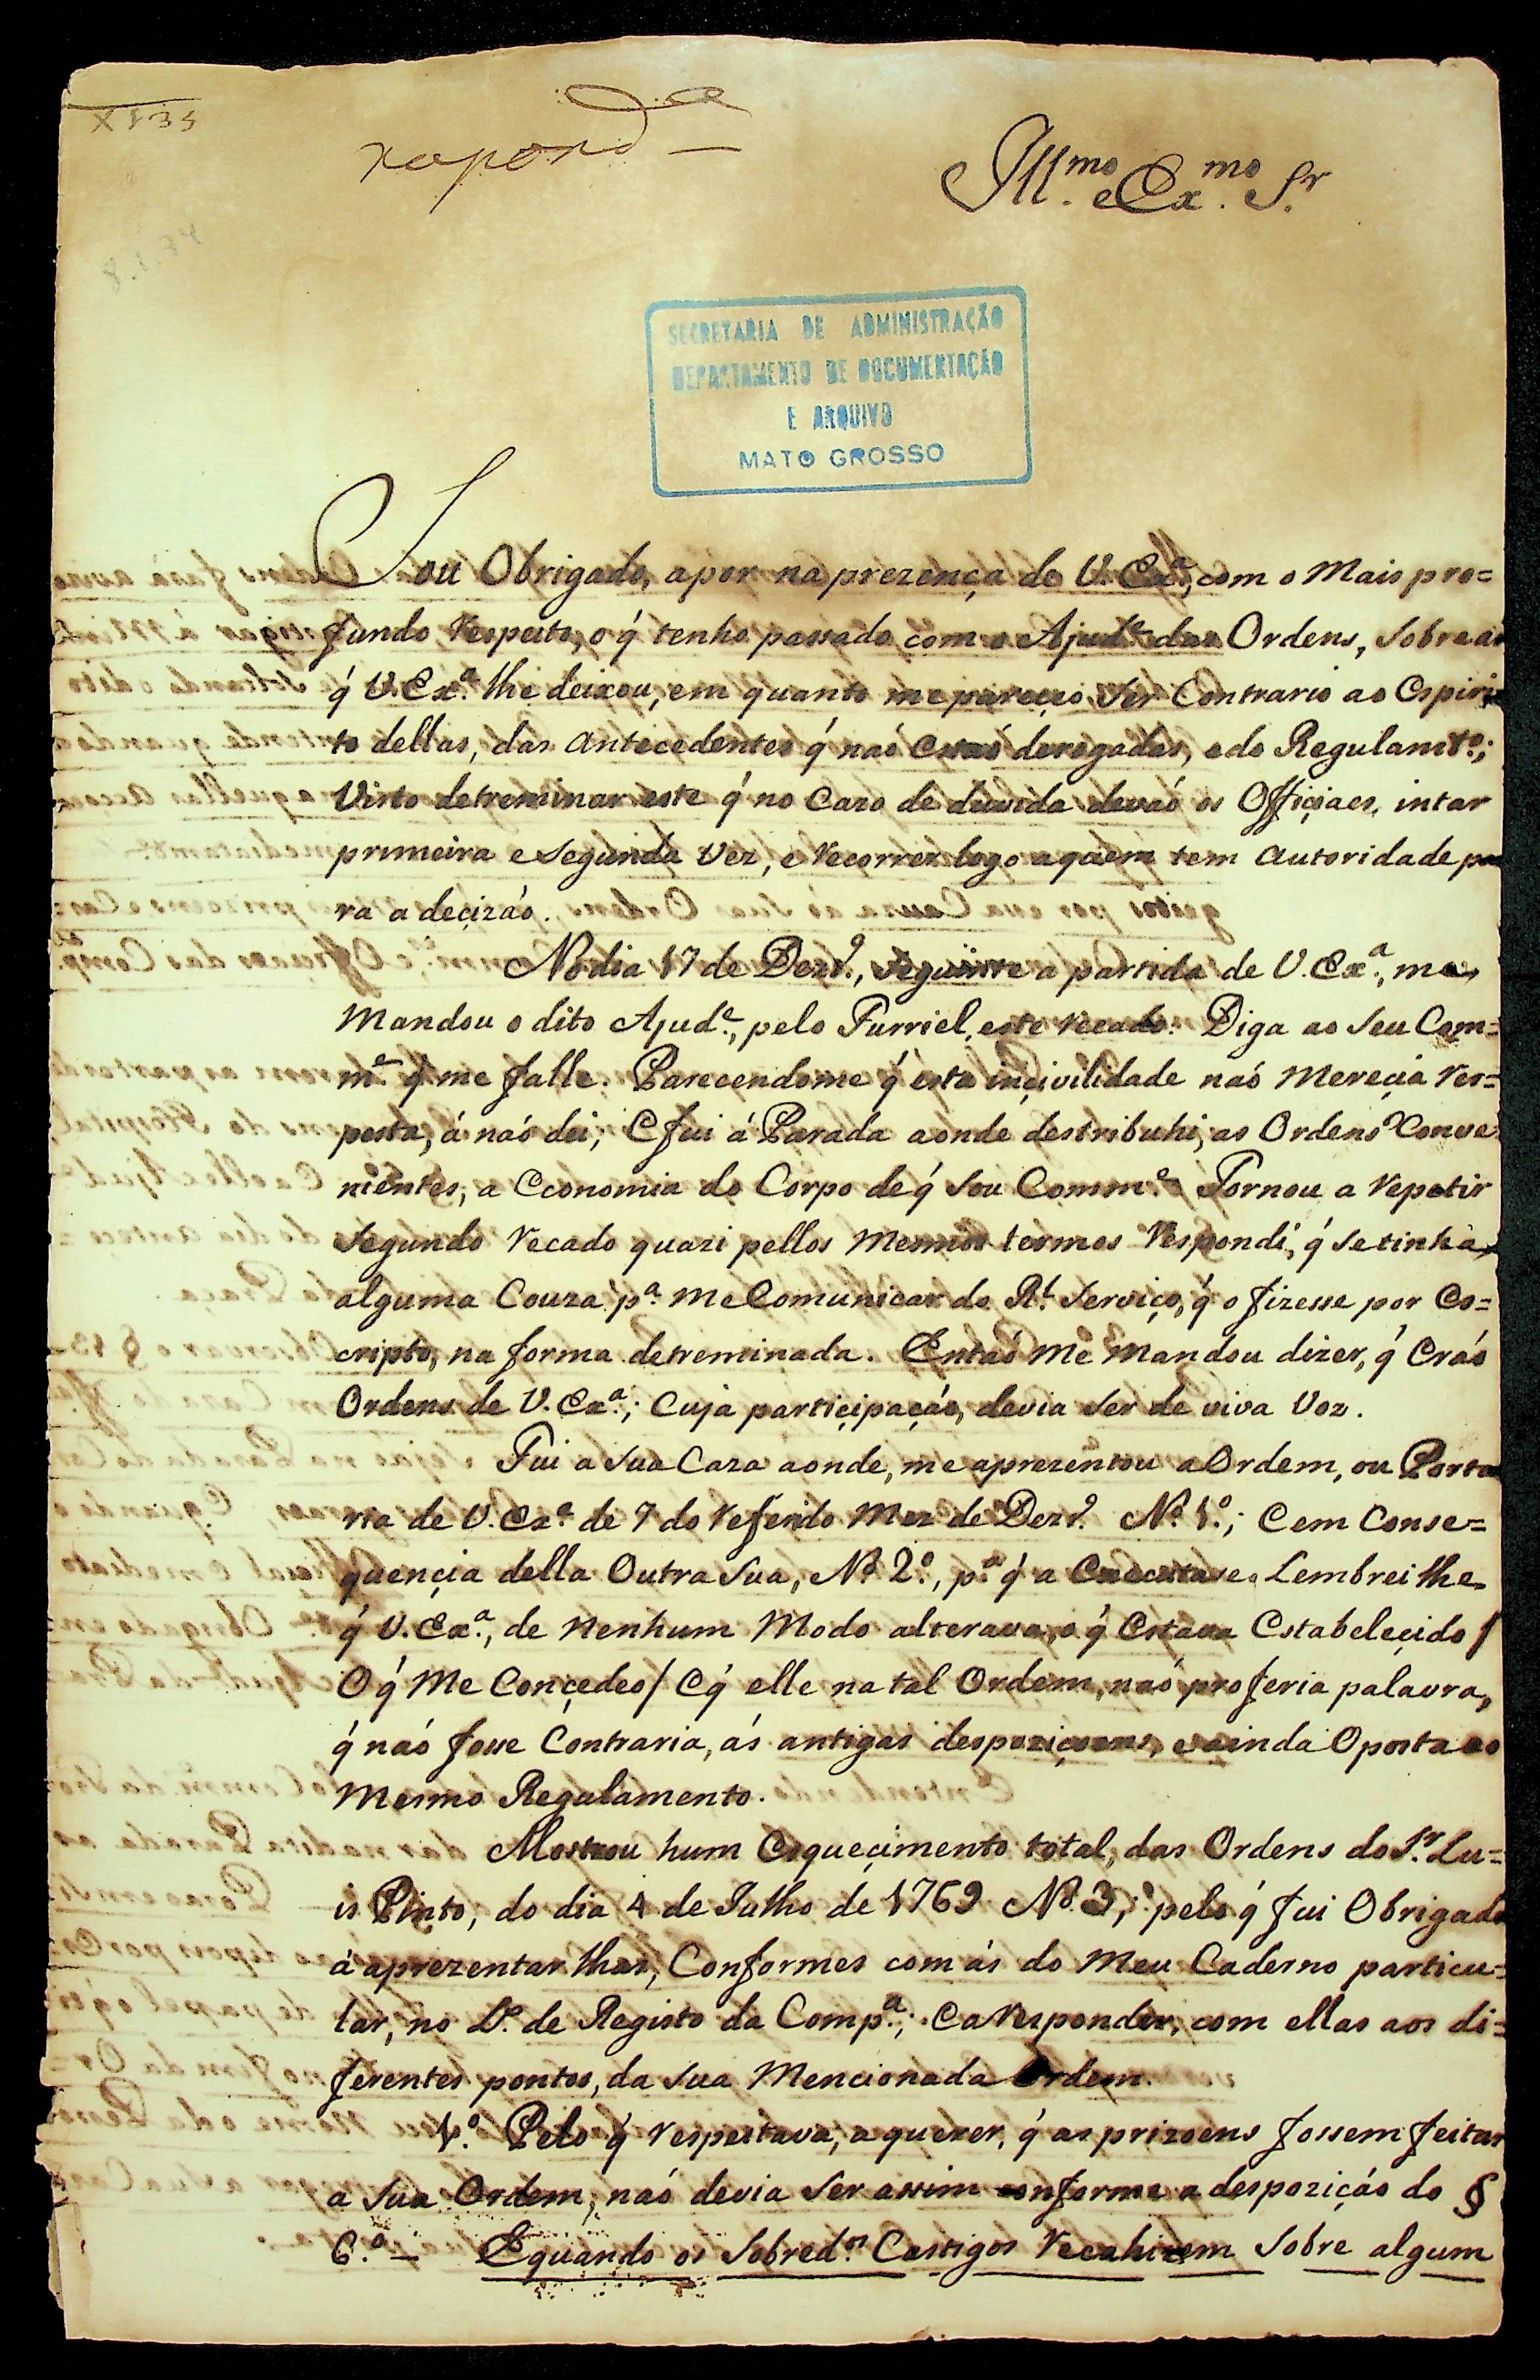 respond.da
Ill.mo e Ex.mo S.r
SECRETARIA DE ADMINISTRAÇÃO
DEPARTAMENTO DE DOCUMENTAÇÃO
E ARQUIVO
MATO GROSSO
Sou Obrigado, a por na prezença de V. Ex.ª, com o Mais pro=
fundo respeito, o q́ tenho passado com o Ajud.e das Ordens, sobre as
q́ V. Ex.ª lhe deixou, em quanto me pareçeo ser Contrario ao Espiri=
to dellas, das antecedentes q́ naó estaó derogadas, e do Regulamt.o;
Visto detreminar este q́ no Cazo de duvida devaó os Offiçiaes, intar
primeira e segunda vez, e recorrer logo a quem tem autoridade pa
ra a deçizaó.
No dia 17 de Dezr.o, seguinte a partida de V. Ex.ª, me
Mandou o dito Ajud.e, pelo Furriel, este recado: Diga ao seu Com=
m.e q́ me falle. Parecendome q́ esta inçivilidade naó Mereçia res=
posta, á naó dei; E fui á Parada aonde destribuhi, as Ordens Conve
nientes, a Economia do Corpo de q́ sou Comm.e Tornou a repetir
segundo recado quazi pellos Mesmos termos Respondi, q́ se tinha
alguma Couza p.ª me Comunicar do R.l serviço, q́ o fizesse por Es=
cripto, na forma detreminada. Entaó me mandou dizer, q́ Eraó
Ordens de V. Ex.ª; Cuja partiçipaçaó, devia ser de viva Voz.
Fui a sua Caza aonde, me aprezentou a Ordem, ou Porta
ria de V. Ex.ª de 7 do referido Mez de Dezr.o N.º 1.º; E em Conse=
quençia della Outra sua, N.º 2.º, p.ª q́ a Executase. Lembreilhe
q́ V. Ex.ª, de Nenhum Modo alterava, o q́ Estava Estabeleçido /
O q́ Me Conçedeo / E q́ elle na tal Ordem, naó proferia palavra,
q́ naó fosse Contraria, ás antigas despoziçoens, e ainda Oposta ao
Mesmo Regulamento.
Mostrou hum Esqueçimento total, das Ordens do S.r Lu=
is Pinto, do dia 4 de Julho de 1769 N.º 3,º pelo q́ fui Obrigado
á aprezentarlhas, Conformes com ás do Meu Caderno particu=
lar, no L.º de Registo da Comp.ª; E a responder, com ellas aos di=
ferentes pontos, da sua Mencionada Ordem.
1.º Pelo q́ respeitava, a querer, q́ as prizoens fossem feitas
a sua Ordem, naó devia ser assim conforme a despoziçaó do §
6.º _ E quando os sobred.os Castigos recahirem sobre algum